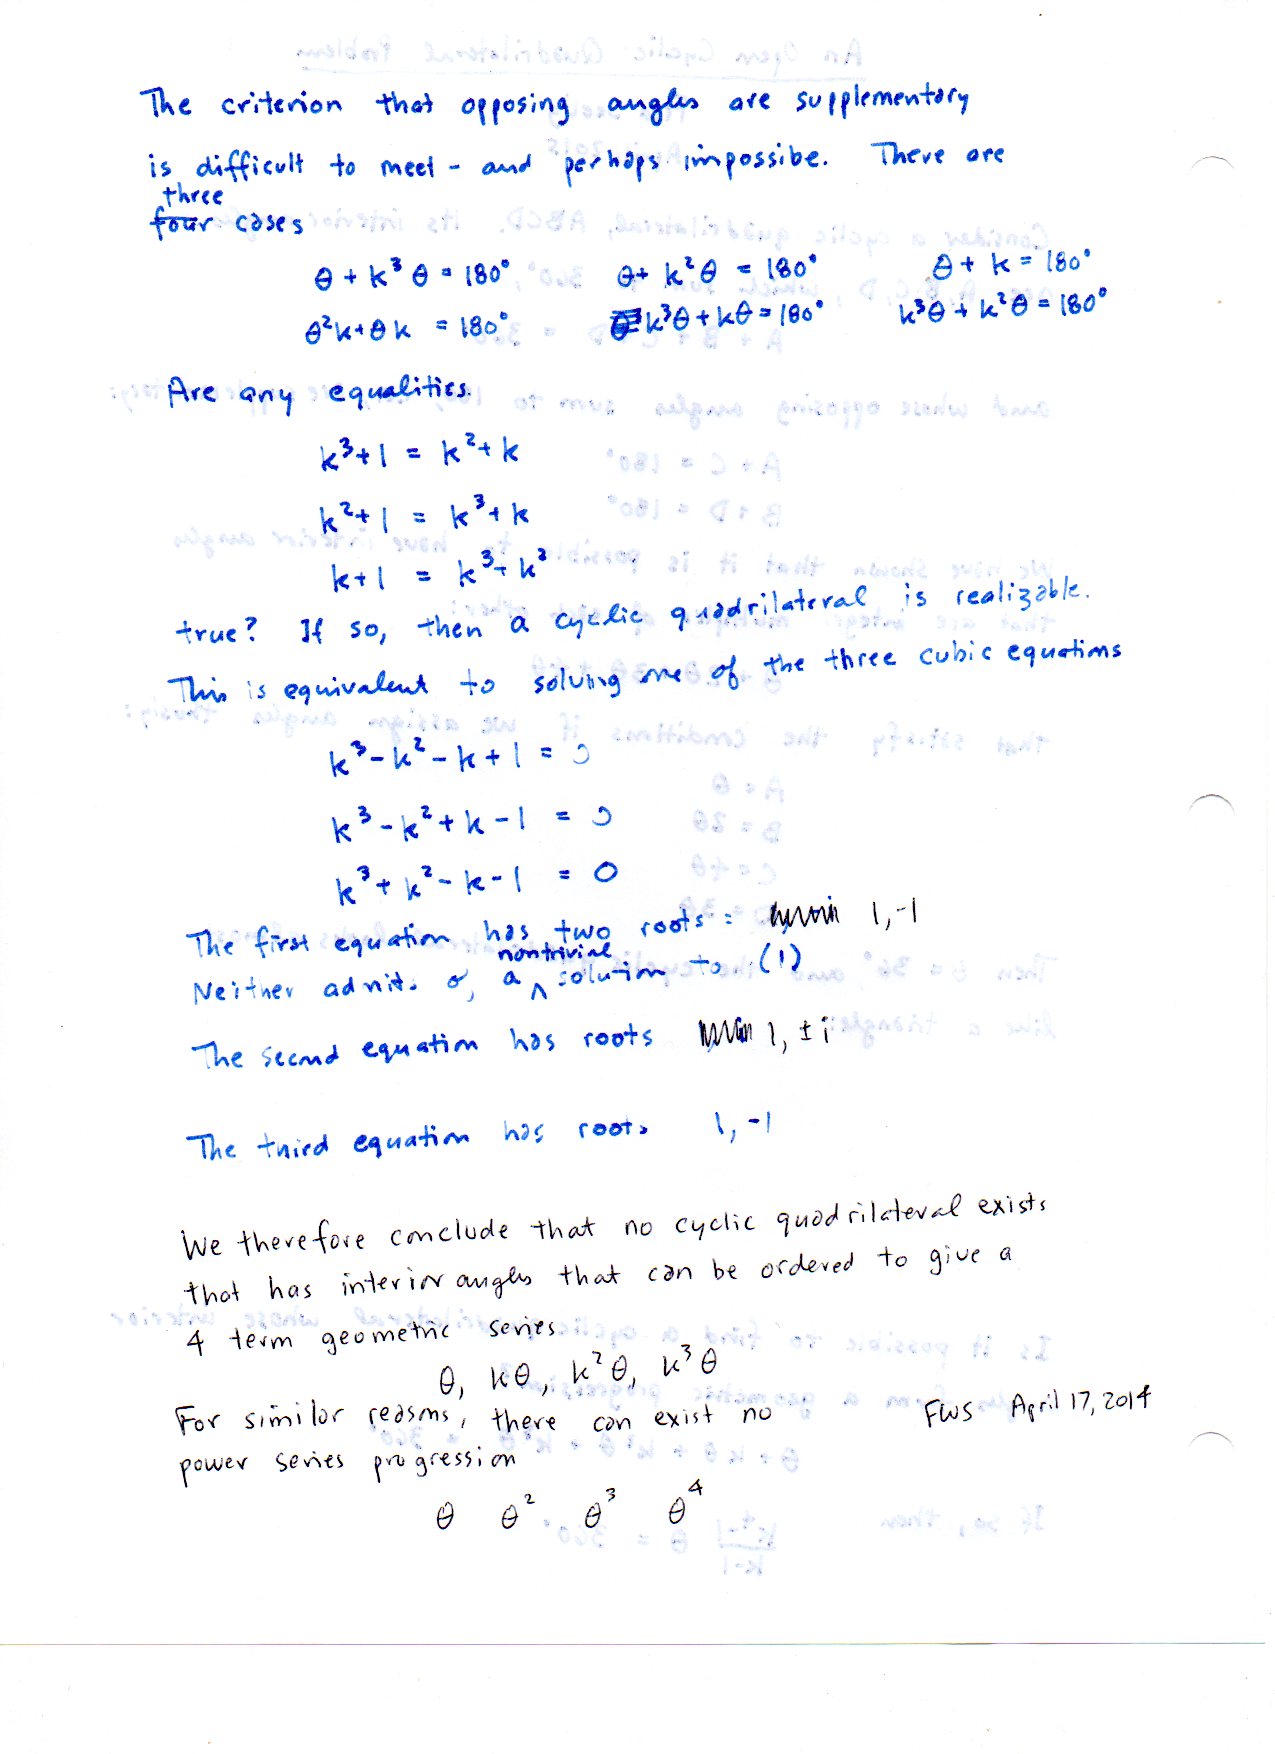 The criterion that opposing angles are supplementary
is difficult to meet - and perhaps impossibe. There are
three
four cases
θ + k³θ = 180° θ + k²θ = 180° θ + k = 180°
θ²k + θk = 180° k³θ + kθ = 180° k³θ + k²θ = 180°
Are any equalities.
k³+1 = k²+k
k²+1 = k³+k
k+1 = k³+k²
true? If so, then a cyclic quadrilateral is realizable.
This is equivalent to solving one of the three cubic equations
k³-k²-k+1 = 0
k³-k²+k-1 = 0
k³+k²-k-1 = 0
The first equation has two roots: 1, -1
nontrivial
Neither admits of a ^ solution to (1)
The second equation has roots 1, ±i
The third equation has roots 1, -1
We therefore conclude that no cyclic quadrilateral exists
that has interior angles that can be ordered to give a
4 term geometric series
θ, kθ, k²θ, k³θ
For similar reasons, there can exist no
FWS April 17, 2014
power series progression
θ θ² θ³ θ⁴